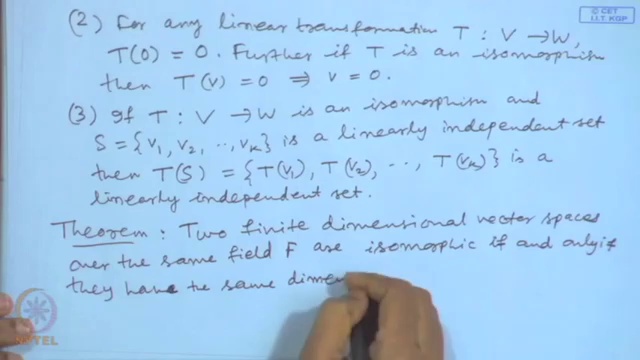 © CET
I.I.T. KGP
(2) For any linear transformation T : V → W,
T(0) = 0. Further if T is an isomorphism
then T(v) = 0 ⟹ v = 0.
(3) If T : V → W is an isomorphism and
S = {v₁, v₂, .., vₖ} is a linearly independent set
then T(S) = {T(v₁), T(v₂), .., T(vₖ)} is a
linearly independent set.
Theorem : Two finite dimensional vector spaces
over the same field F are isomorphic if and only if
they have the same dimen
NPTEL